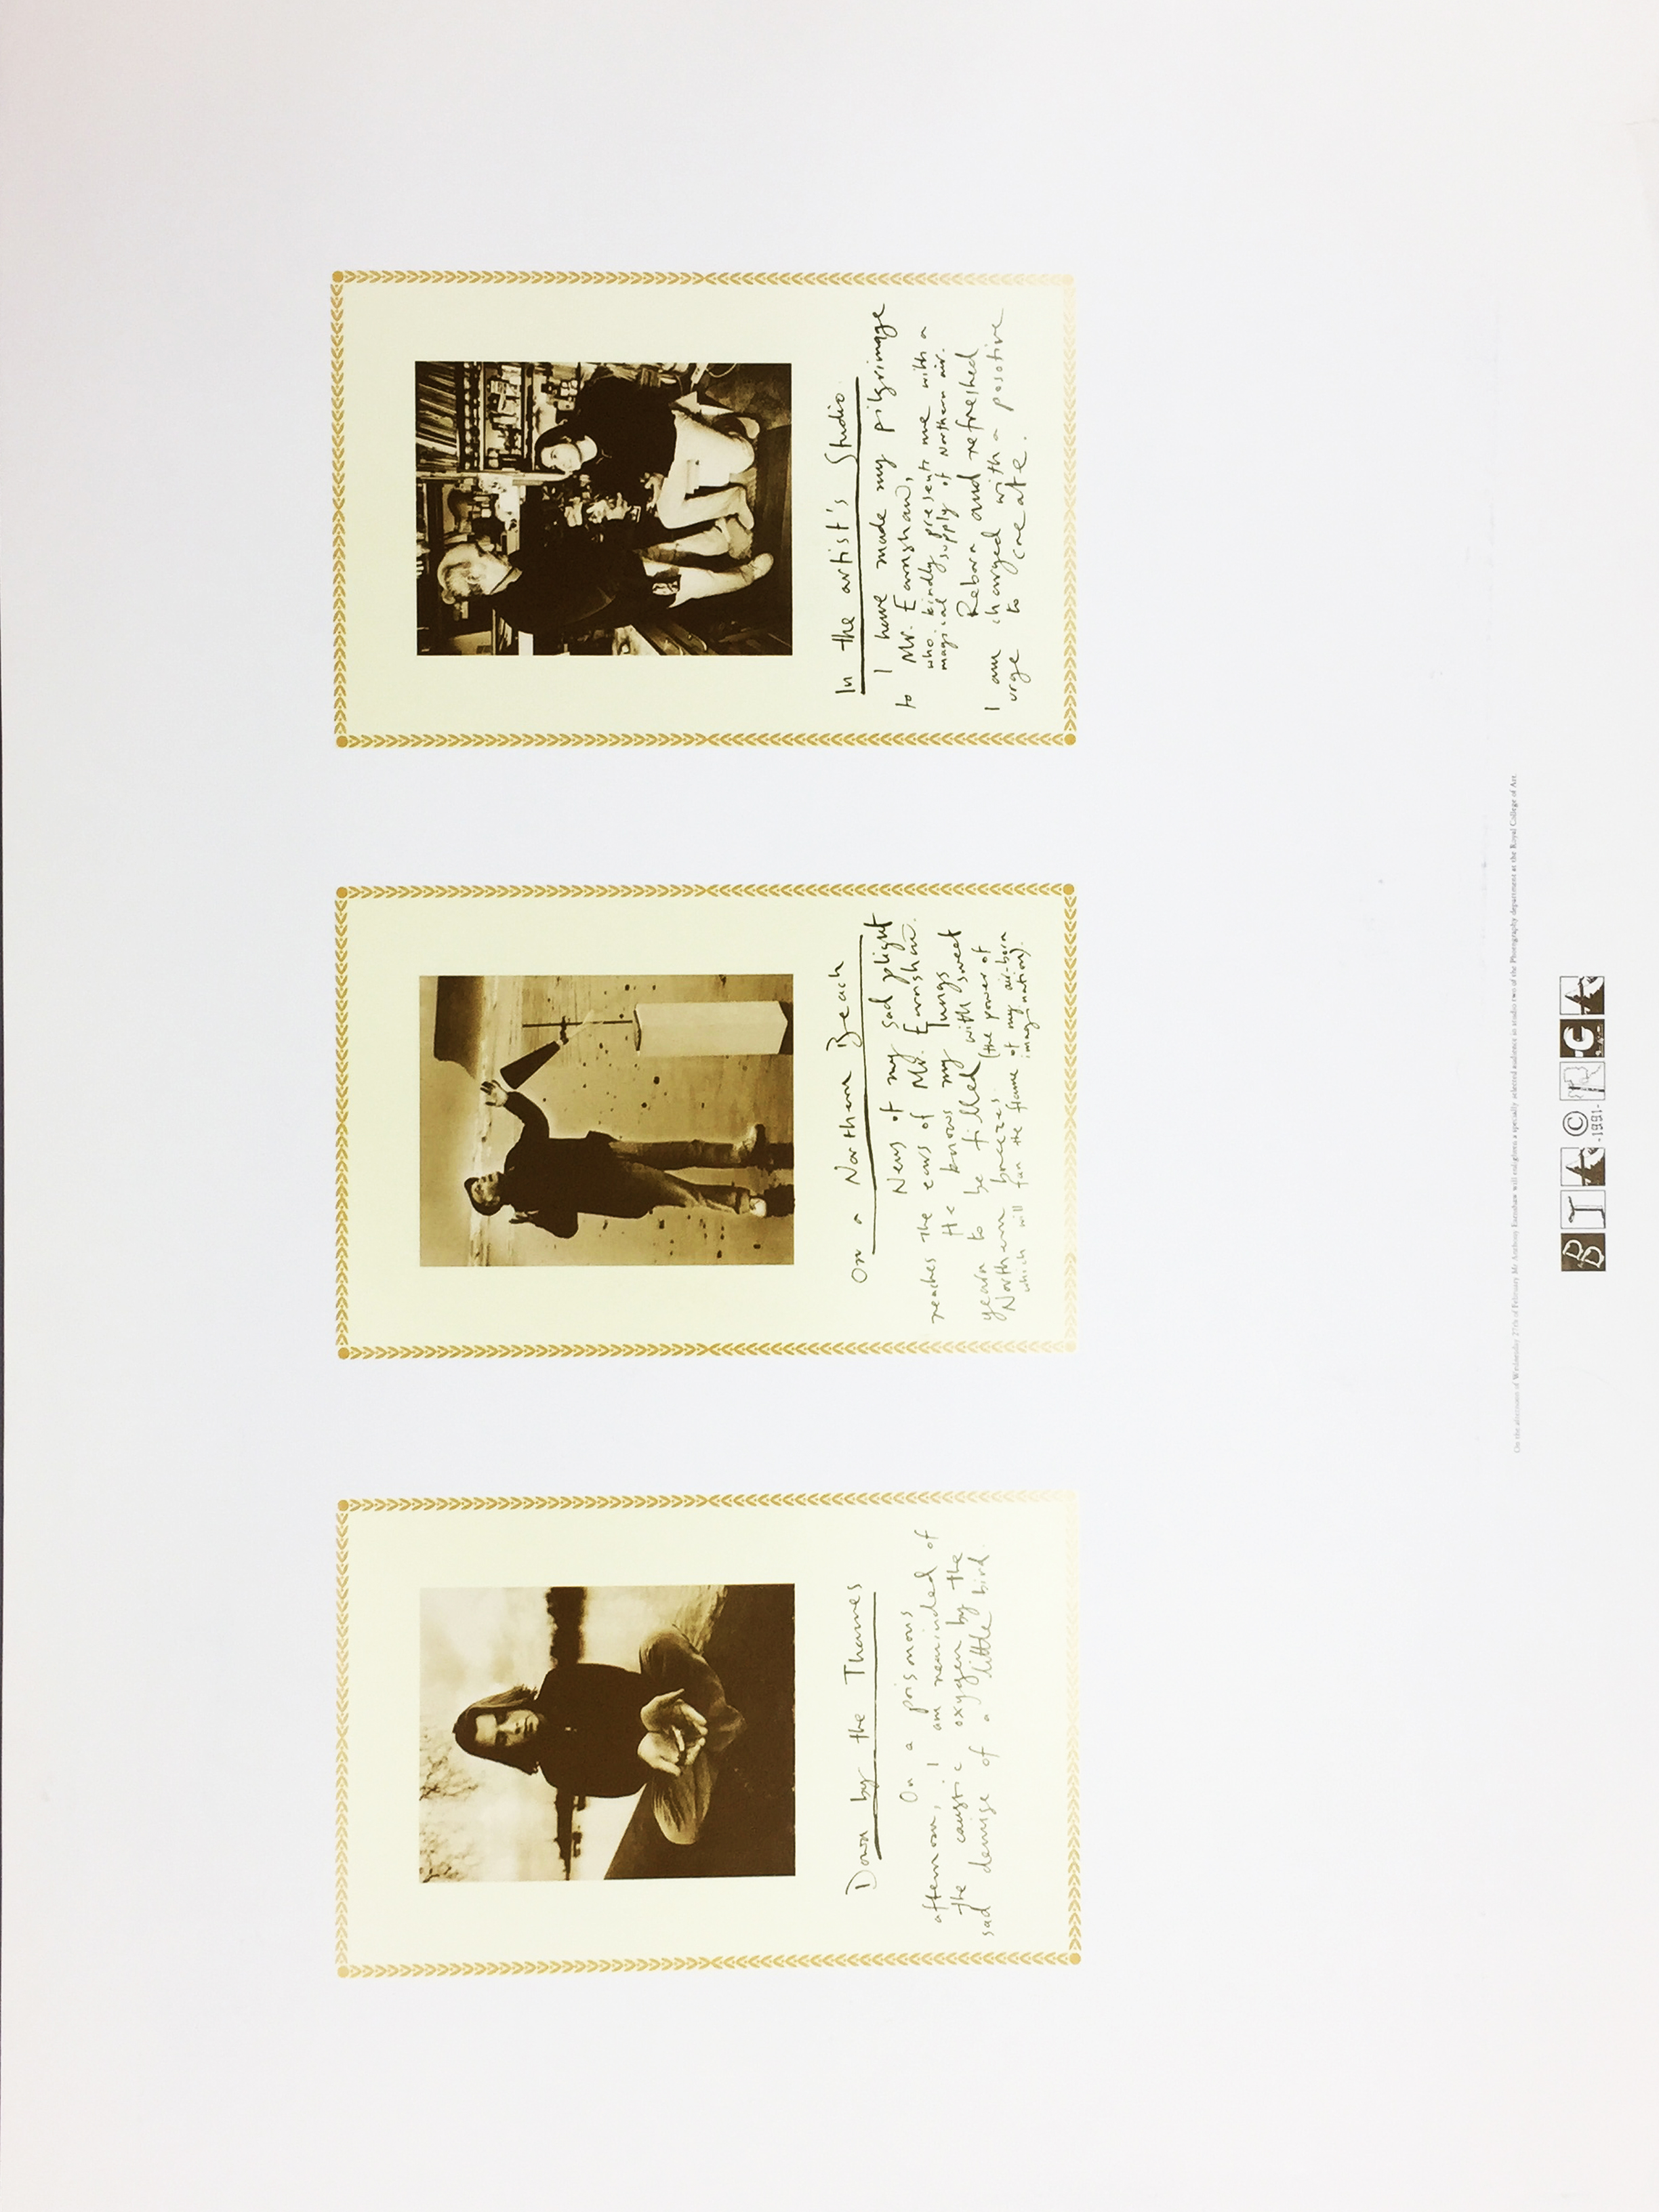 Down by the Thames
On a poisonous
afternoon, I am reminded of
the caustic oxygen by the
sad demise of a little bird.
On a Northern Beach
News of my sad plight
reaches the ears of Mr. Earnshaw.
He knows my lungs
yearn to be filled with sweet
Northern breezes (the power of
which will fan the flame of my air-born
imagination).
In the artist's Studio.
I have made my pilgrimage
to Mr. Earnshaw,
who kindly presents me with a
magical supply of Northern air.
Reborn and refreshed
I am charged with a positive
urge to create.
On the afternoon of Wednesday 27th of February Mr Anthony Earnshaw will enlighten a specially selected audience in studio two of the Photography department at the Royal College of Art.
B T A © R C A
-1991-